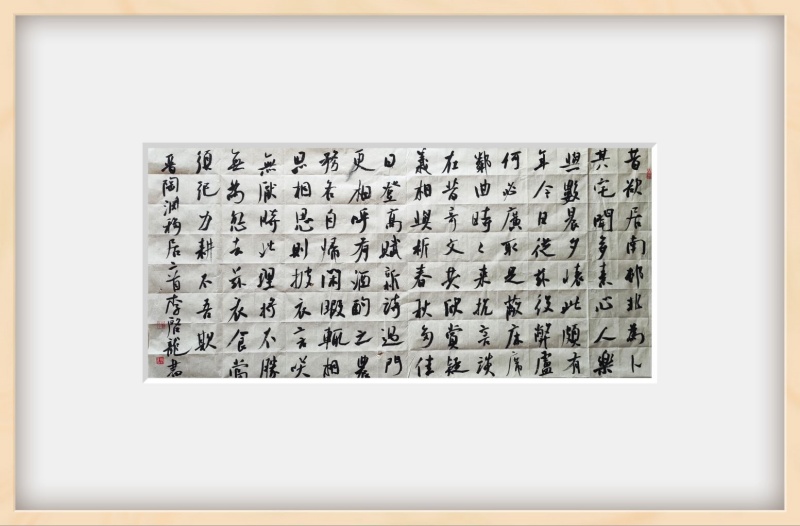 昔欲居南邨非為卜
其宅聞多素心人樂
與數晨夕懷此頗有
年今日從茲役弊廬
何必廣取足蔽床席
鄰曲時々來抗言談
在昔奇文共欣賞疑
義相與析春秋多佳
日登高賦新詩過門
更相呼有酒酌之農
務各自歸閑暇輒相
思相思則披衣言笑
無厭時此理將不勝
無為忽去茲衣食當
須紀力耕不吾欺
晉陶淵移居二首李啓龍書